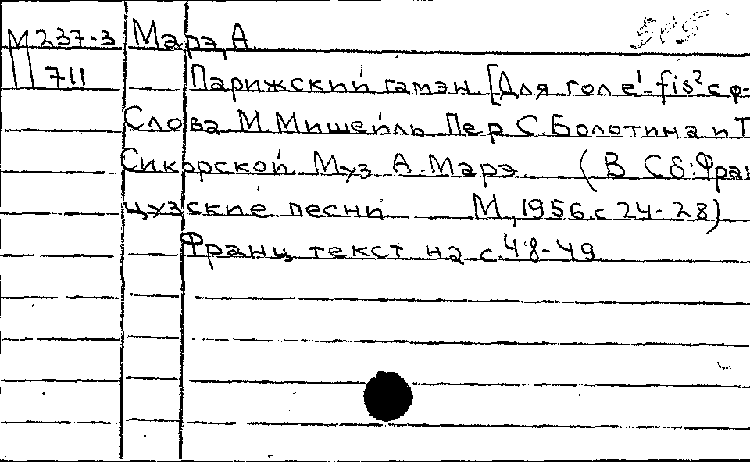 М237-3 Марэ, А.
711 Парижский гамэн [Для гол e¹-fis² с ф-
Слова М. Мишейль Пер С. Болотина и Т
Сикорской Муз. А. Марэ. (В Сб: Фран
цузские песни М., 1956. с 24-28)
Франц текст на с. 48-49